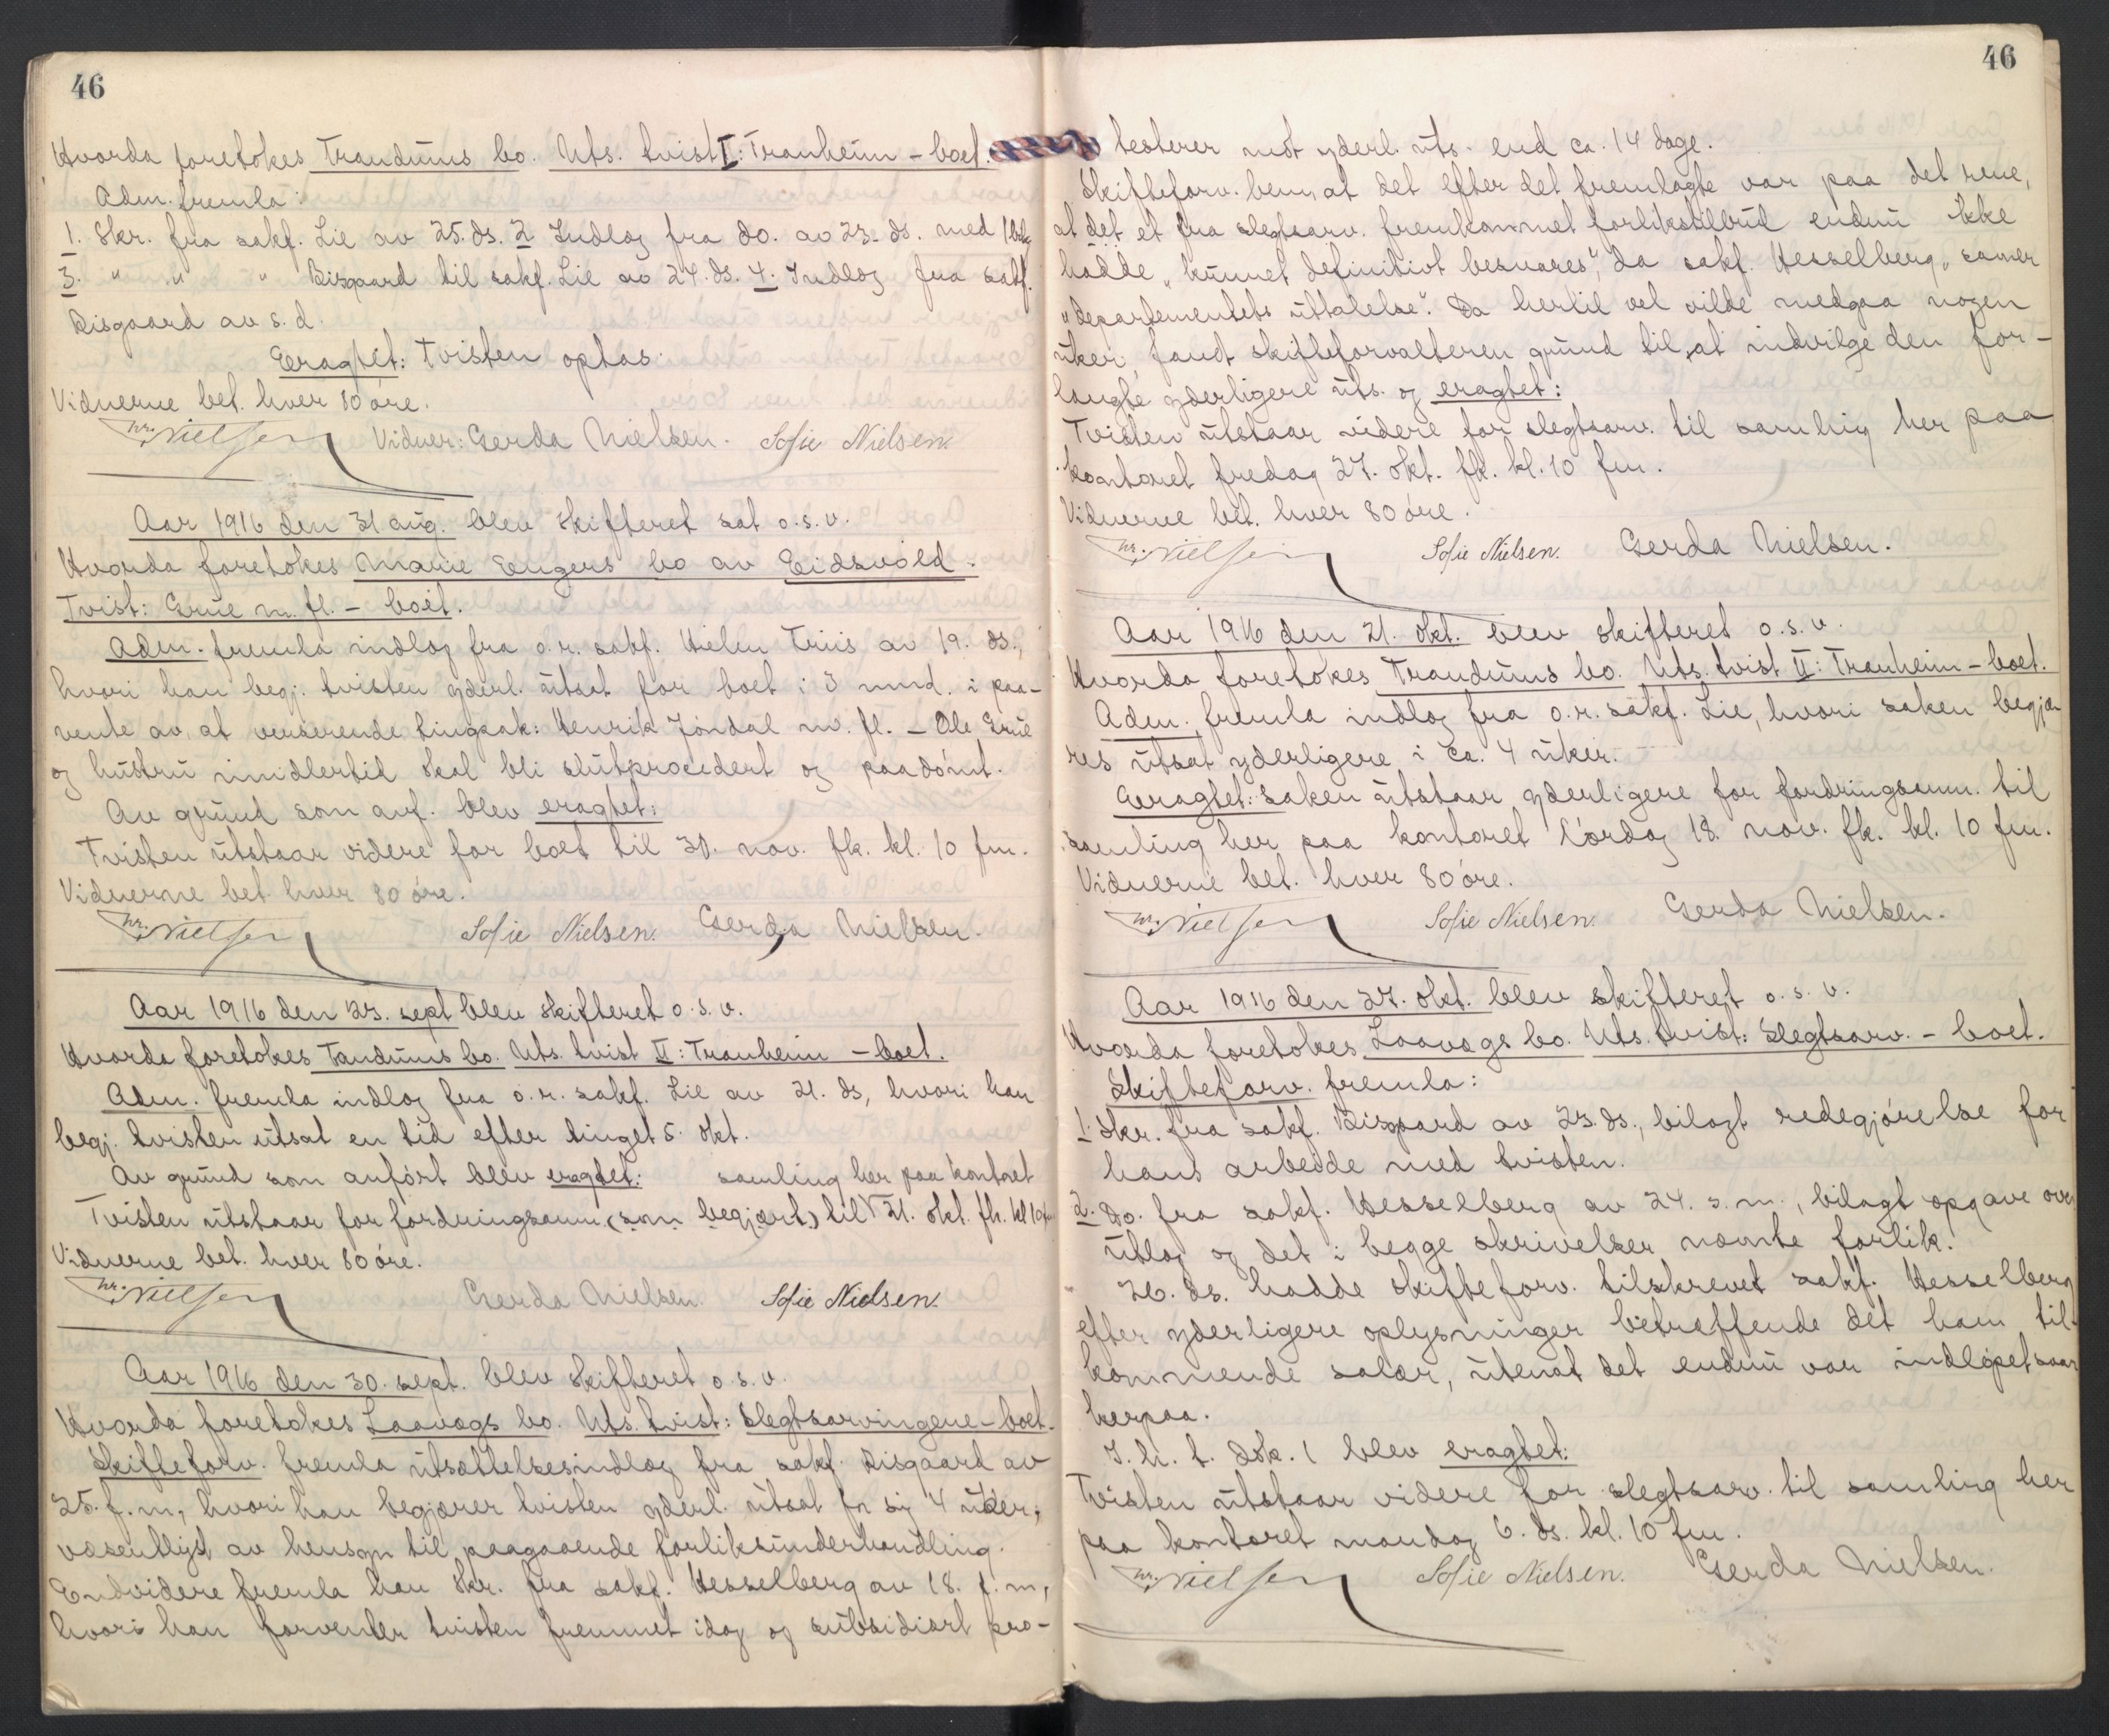 46
Hvorda foretokes Trandums bo. Uts. tvist I: Tranheim - boet.
Adm. fremla:
1. Skr. fra sakf. Lie av 25. ds. 2 Indlæg fra do. av 23. ds. med 1 bil.
3. " " " Bisgaard til sakf. Lie av 24. ds. 4. Indlæg fra sakf.
Bisgaard av s. d.
Eragtet: Tvisten optas.
Vidnerne bet. hver 80 øre.
W. Nielsen Vidner: Gerda Nielsen. Sofie Nielsen.
Aar 1916 den 31 aug. blev skifteret sat o. s. v.
Hvorda foretokes Marie Engers bo av Eidsvold.
Tvist: Grue m. fl. - boet.
Adm. fremla indlæg fra o. r. sakf. Vilem Triis av 19. ds.,
hvori han begj. tvisten yderl. utsat for boet i 3 mnd. i paa-
vente av, at verserende tingsak: Henrik Jøndal m. fl. - Ole Grue
og hustru imidlertid skal bli slutprocedert og paadømt.
Av grund som anf. blev eragtet:
Tvisten utstaar videre for boet til 30. nov. fk. kl. 10 fm.
Vidnerne bet. hver 80 øre.
W. Nielsen Sofie Nielsen. Gerda Nielsen.
Aar 1916 den 23. sept blev skifteret o. s. v.
Hvorda foretokes Tandums bo. Uts. tvist II: Tranheim - boet.
Adm. fremla indlæg fra o. r. sakf. Lie av 21. ds, hvori han
begj. tvisten utsat en tid efter tinget 5. okt.
Av grund som anført blev eragtet: samling her paa kontoret
Tvisten utstaar for fordringsanm. (som begjært) til 21. okt. fk. kl 10 fm
Vidnerne bet. hver 80 øre.
W. Nielsen Gerda Nielsen. Sofie Nielsen.
Aar 1916 den 30. sept. blev skifteret o. s. v.
Hvorda foretokes Laavægs bo. Uts. tvist: Slegtsarvingene - boet.
Skifteforv. fremla utsættelsesindlæg fra sakf. Bisgaard av
25. f. m, hvori han begjærer tvisten yderl. utsat for sig 4 uker,
væsentligst av hensyn til paagaaende forliksunderhandling.
Endvidere fremla han skr. fra sakf. Hesselberg av 18. f. m,
hvori han forventer tvisten fremmet idag og subsidiært pro-
46
testerer mot yderl. uts. end ca. 14 dage.
Skifteforv. bem, at det efter det fremlagte var paa det rene,
at det et fra slegtsarv. fremkommet forlikstilbud endnu ikke
hadde "kunnet definitivt besvares", da sakf. Hesselberg "savner
"departementets uttalelse". Da hertil vel vilde medgaa nogen
uker, fandt skifteforvalteren grund til, at indvilge den for-
langte yderligere uts. og eragtet:
Tvisten utstaar videre for slegtsarv. til samling her paa
kontoret fredag 27. okt. fk. kl. 10 fm.
Vidnerne bet. hver 80 øre.
W. Nielsen Sofie Nielsen. Gerda Nielsen.
Aar 1916 den 21. okt. blev skifteret o. s. v.
Hvorda foretokes Trandums bo. Uts. tvist II: Tranheim - boet.
Adm. fremla indlæg fra o. r. sakf. Lie, hvori saken begjæ
res utsat yderligere i ca. 4 uker.
Eragtet: Saken utstaar yderligere for fordringsanm. til
samling her paa kontoret lørdag 18. nov. fk. kl. 10 fm.
Vidnerne bet. hver 80 øre.
W. Nielsen Sofie Nielsen. Gerda Nielsen.
Aar 1916 den 27. okt. blev skifteret o. s. v.
Hvorda foretokes Laavægs bo. Uts. tvist: Slegtsarv. - boet.
Skifteforv. fremla:
1. Skr. fra sakf. Bisgaard av 23. ds., bilagt redegjørelse for
hans arbeide med tvisten.
2. Do. fra sakf. Hesselberg av 24. s. m., bilagt opgave over
utlæg og det i begge skrivelser nævnte forlik.
26. ds. hadde skifteforv. tilskrevet sakf. Hesselberg
efter yderligere oplysninger betræffende det ham til-
kommende salær, utenat det endnu var indløpet svar
herpaa.
I. h. t. dok. 1 blev eragtet:
Tvisten utstaar videre for slegtsarv. til samling her
paa kontoret mandag 6. ds. kl. 10 fm.
W. Nielsen Sofie Nielsen. Gerda Nielsen.